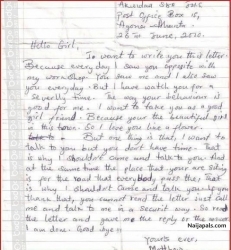 Post Office Box 15,
28th June, 2010.
Hello Girl,
I want to write you this letter
Because every day I saw you opposite with
my workshop. You saw me and I also saw
you everyday. But I have watch you for a
Severly time. The way your behaviour is
good for me. I want to take you as a good
girl friend. Because your the beautiful girl
in this town. So I love you like a flower.
But one thing is that, I want to
talk to you but you don't have time. That
is why I shouldn't came and talk to you. And
at the same time the place that your are
is for the road that every body pass they that
is why I shouldn't came and talk you.
than that, you read the letter just call
me and talk to me in a Secret way. So read
the letter and gave me the reply or the
I am done. Good bye
Yours ever,
Naijapals.com